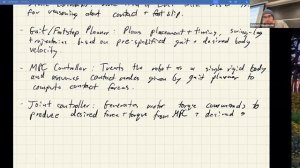 for reasoning about contact + footslip.
- Gait / Footstep Planner : Plans placement + timing, swing-leg
trajectories based on pre-specified gait + desired body
velocity
- MPC Controller : Treats the robot as a single rigid body
and assumes contact modes given by gait planner to
compute contact forces.
- Joint controller : Generates motor torque commands to
produce desired force + torque from MPC + desired